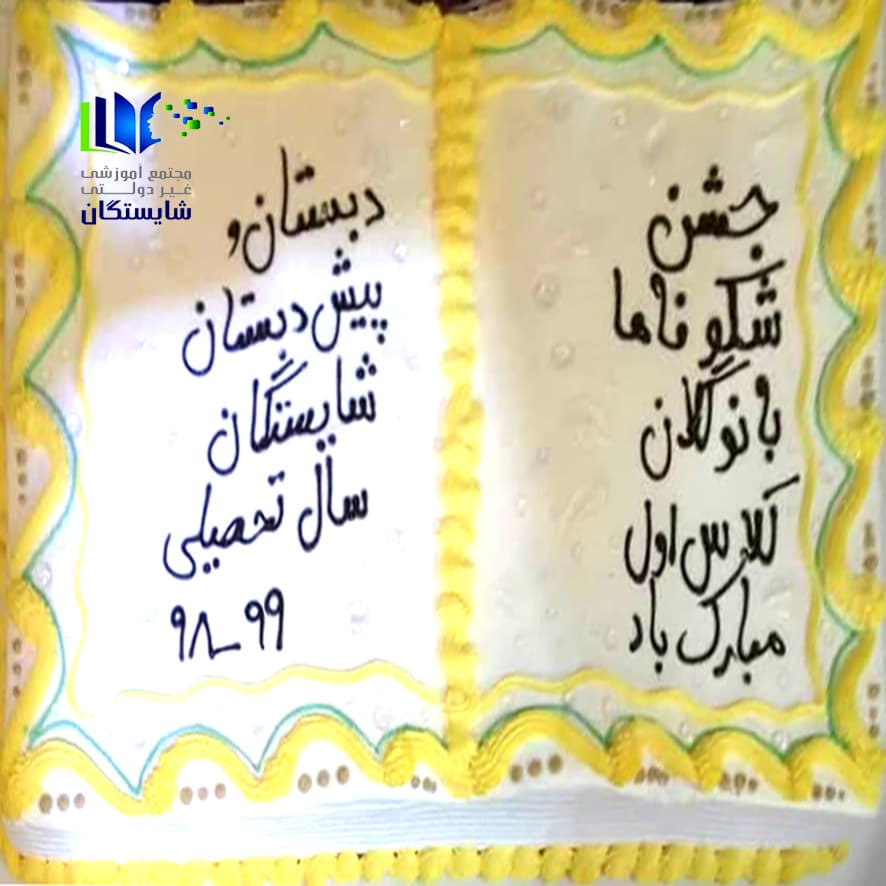 جشن
شکوفه‌ها
با نوگلان
کلاس اول
مبارک باد
دبستان و
پیش دبستان
شایستگان
سال تحصیلی
۹۸_۹۹
مجتمع آموزشی
غیر دولتی
شایستگان